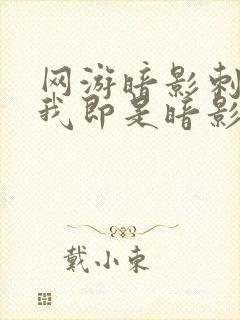 网游暗影刺
我即是暗影
戴小束